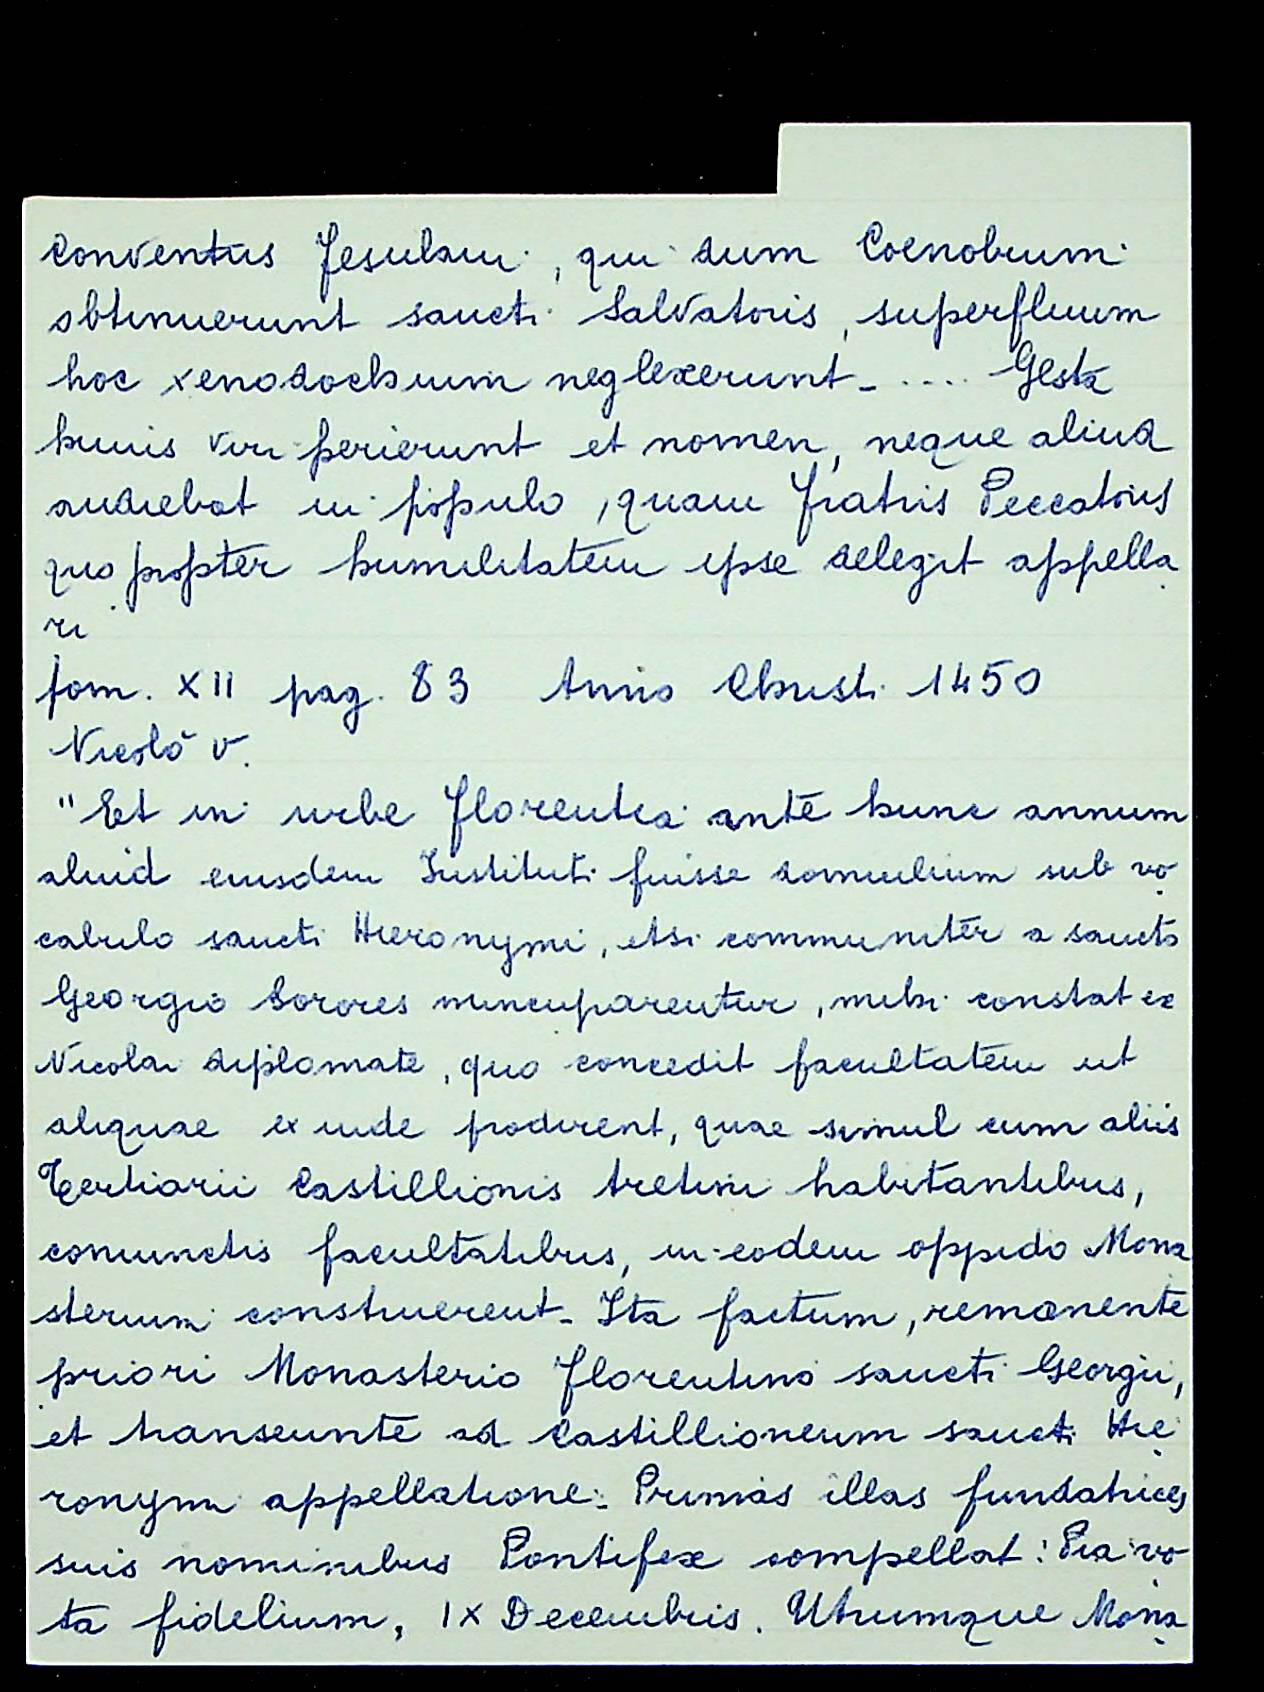 Conventus Fesulani, qui dum Coenobium
obtinuerunt sancti Salvatoris, superfluum
hoc xenodochium neglexerunt_ .... Gesta
huius viri perierunt et nomen, neque aliud
audiebat in populo, quam Fratris Peccatoris
quo propter humilitatem ipse delegit appella
ri
Tom. XII pag. 83 Anno Christi 1450
Nicolò V.
"Et in urbe Florentia ante hunc annum
aluid eiusdem Instituti fuisse domicilium sub vo
cabulo sancti Hieronymi, etsi communiter a sancto
Georgio Sorores nuncuparentur, mihi constat ex
Nicolai diplomate, quo concedit facultatem ut
aliquae exinde prodirent, quae simul cum aliis
Tertiarii Castillionis Aretini habitantibus,
coniunctis facultatibus, in eodem oppido Mona
sterium construerent_ Ita factum, remanente
priori Monasterio Florentino sancti Georgii,
et transeunte ad Castillioneum sancti Hie
ronymi appellatione. Primas illas fundatrices
suis nominibus Pontifex compellat: Pia vo
ta fidelium, IX Decembris. Utrumque Mona